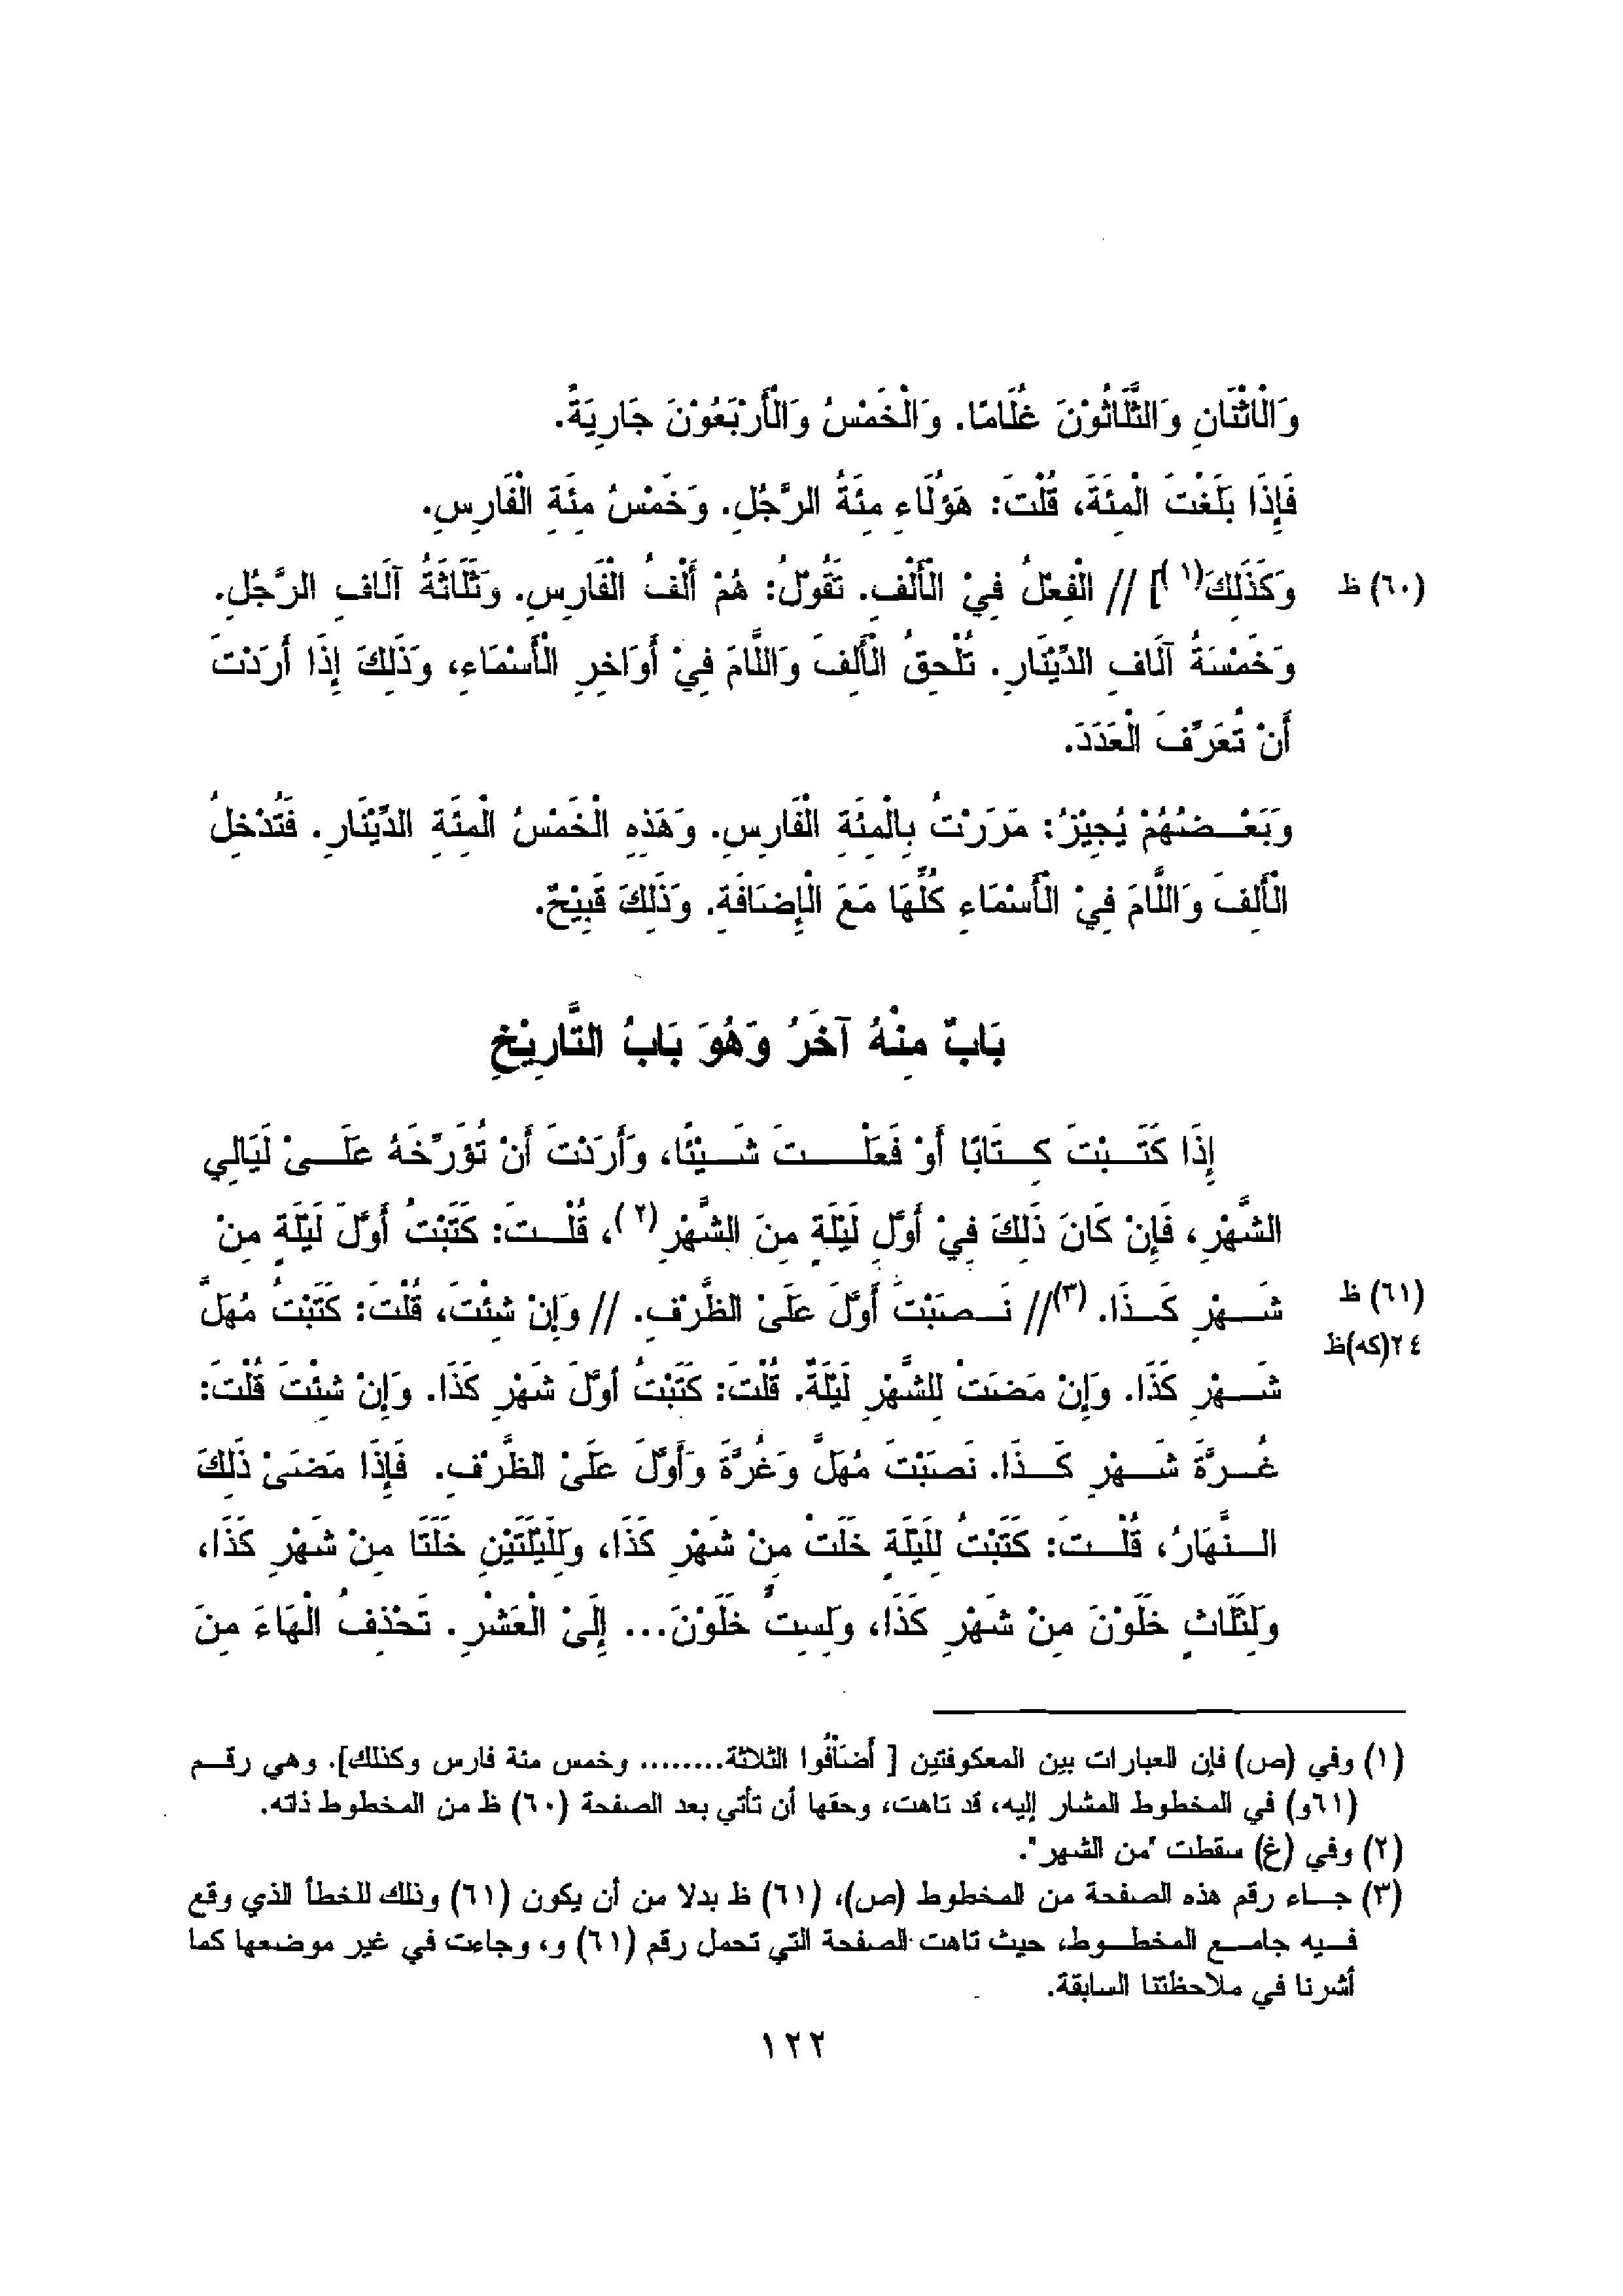 وَالْاثْنَانِ وَالثَّلَاثُوْنَ غُلَامًا. وَالْخَمْسُ وَالْأَرْبَعُوْنَ جَارِيَةً.
فَإِذَا بَلَغْتَ الْمِئَةَ، قُلْتَ: هَؤُلَاءِ مِئَةُ الرَّجُلِ. وَخَمْسُ مِئَةِ الْفَارِسِ.
وَكَذَلِكَ(١)] // الْفِعْلُ فِيْ الْأَلْفِ. تَقُوْلُ: هُمْ أَلْفُ الْفَارِسِ. وَثَلَاثَةُ آلَافِ الرَّجُلِ. (٦٠) ظ
وَخَمْسَةُ آلَافِ الدِّيْنَارِ. تُلْحِقُ الْأَلِفَ وَاللَّامَ فِيْ أَوَاخِرِ الْأَسْمَاءِ، وَذَلِكَ إِذَا أَرَدْتَ
أَنْ تُعَرِّفَ الْعَدَدَ.
وَبَعْضُهُمْ يُجِيْزُ: مَرَرْتُ بِالْمِئَةِ الْفَارِسِ. وَهَذِهِ الْخَمْسُ الْمِئَةِ الدِّيْنَارِ. فَتُدْخِلُ
الْأَلِفَ وَاللَّامَ فِيْ الْأَسْمَاءِ كُلِّهَا مَعَ الْإِضَافَةِ. وَذَلِكَ قَبِيْحٌ.
بَابٌ مِنْهُ آخَرُ وَهُوَ بَابُ التَّارِيْخِ
إِذَا كَتَبْتَ كِتَابًا أَوْ فَعَلْتَ شَيْئًا، وَأَرَدْتَ أَنْ تُؤَرِّخَهُ عَلَىْ لَيَالِي
الشَّهْرِ، فَإِنْ كَانَ ذَلِكَ فِيْ أَوَّلِ لَيْلَةٍ مِنَ الشَّهْرِ(٢)، قُلْتَ: كَتَبْتُ أَوَّلَ لَيْلَةٍ مِنْ
شَهْرِ كَذَا. (٣)// نَصَبْتَ أَوَّلَ عَلَىْ الظَّرْفِ. // وَإِنْ شِئْتَ، قُلْتَ: كَتَبْتُ مُهَلَّ (٦١) ظ
٢٤(كه)ظ
شَهْرِ كَذَا. وَإِنْ مَضَتْ لِلشَّهْرِ لَيْلَةٌ. قُلْتَ: كَتَبْتُ أَوَّلَ شَهْرِ كَذَا. وَإِنْ شِئْتَ قُلْتَ:
غُرَّةَ شَهْرِ كَذَا. نَصَبْتَ مُهَلَّ وَغُرَّةَ وَأَوَّلَ عَلَىْ الظَّرْفِ. فَإِذَا مَضَىْ ذَلِكَ
النَّهَارُ، قُلْتَ: كَتَبْتُ لِلَيْلَةٍ خَلَتْ مِنْ شَهْرِ كَذَا، وَلِلَيْلَتَيْنِ خَلَتَا مِنْ شَهْرِ كَذَا،
وَلِثَلَاثٍ خَلَوْنَ مِنْ شَهْرِ كَذَا، وَلِسِتٍّ خَلَوْنَ... إِلَىْ الْعَشْرِ. تَحْذِفُ الْهَاءَ مِنَ
(١) وفي (ص) فإن العبارات بين المعكوفتين [ أَضَافُوا الثلاثة........ وخمس مئة فارس وكذلك]. وهي رقم
(٦١و) في المخطوط المشار إليه، قد تاهت، وحقها أن تأتي بعد الصفحة (٦٠) ظ من المخطوط ذاته.
(٢) وفي (غ) سقطت "من الشهر".
(٣) جاء رقم هذه الصفحة من المخطوط (ص)، (٦١) ظ بدلا من أن يكون (٦١) وذلك للخطأ الذي وقع
فيه جامع المخطوط، حيث تاهت الصفحة التي تحمل رقم (٦١) و، وجاءت في غير موضعها كما
أشرنا في ملاحظتنا السابقة.
١٢٢